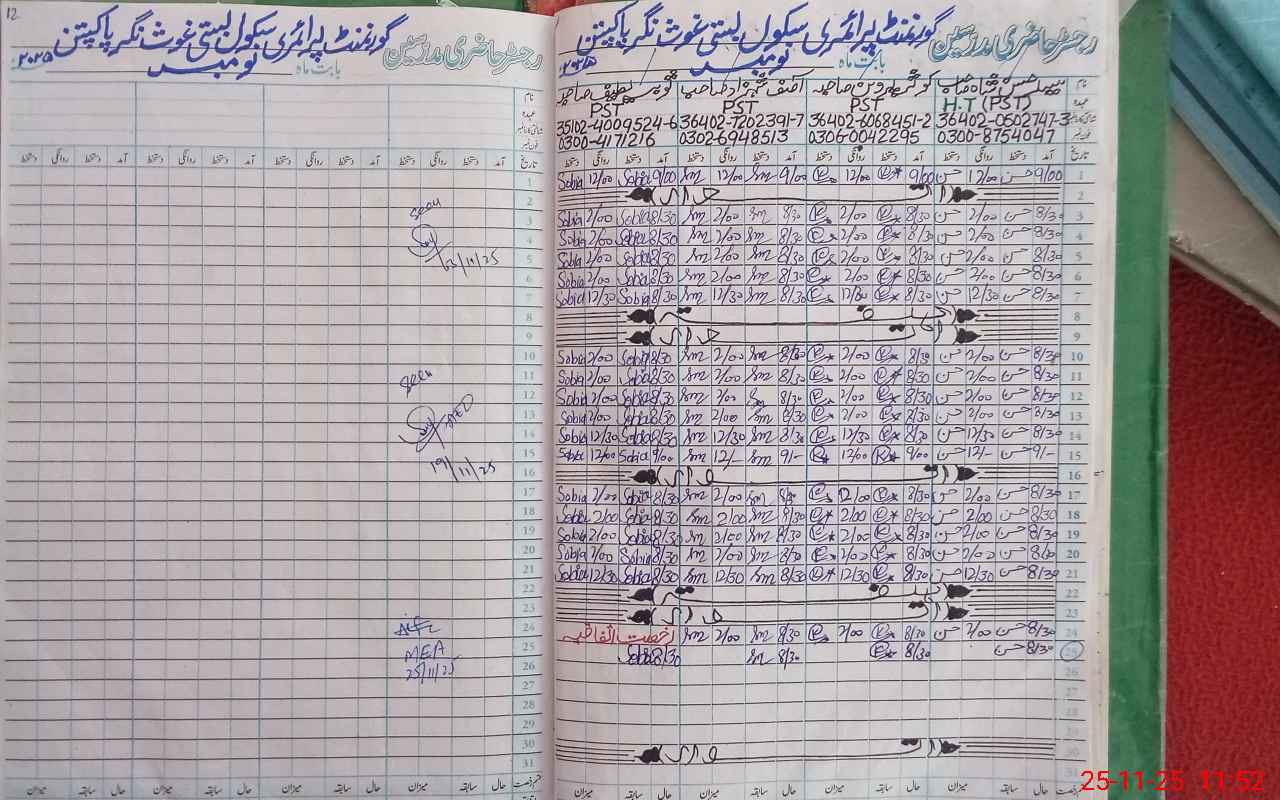 12
گورنمنٹ پرائمری سکول بستی غوث نگر پاکپتن
رجسٹر حاضری مدرسین
بابت ماہ نومبر ۲۰۲۵
نام
عہدہ
شناختی کارڈ نمبر
فون نمبر
تاریخ آمد دستخط روانگی دستخط آمد دستخط روانگی دستخط آمد دستخط روانگی دستخط آمد دستخط روانگی دستخط
1
2
3
4
5
6
7
8
9
10
11
12
13
14
15
16
17
18
19
20
21
22
23
24
25
26
27
28
29
30
31
seen
03/11/25
seen
AEO
19/11/25
MEA
25/11/25
حال سابقہ میزان حال سابقہ میزان حال سابقہ میزان حال سابقہ میزان
گورنمنٹ پرائمری سکول بستی غوث نگر پاکپتن
رجسٹر حاضری مدرسین
بابت ماہ نومبر ۲۰۲۵
نام
عہدہ H.T (PST) PST PST PST
36402-0502747-3 36402-6068451-2 36402-7202391-7 35102-4009524-6
0300-8754047 0306-0042295 0302-6948513 0300-4171216
تاریخ آمد دستخط روانگی دستخط آمد دستخط روانگی دستخط آمد دستخط روانگی دستخط آمد دستخط روانگی دستخط
1 9/00 حسن 12/00 حسن 9/00 12/00 9/00 Sm 12/00 Sm 9/00 Sobia 12/00 Sobia
2 اتوار
3 8/30 حسن 2/00 حسن 8/30 2/00 8/30 Sm 2/00 Sm 8/30 Sobia 2/00 Sobia
4 8/30 حسن 2/00 حسن 8/30 2/00 8/30 Sm 2/00 Sm 8/30 Sobia 2/00 Sobia
5 8/30 حسن 2/00 حسن 8/30 2/00 8/30 Sm 2/00 Sm 8/30 Sobia 2/00 Sobia
6 8/30 حسن 2/00 حسن 8/30 2/00 8/30 Sm 2/00 Sm 8/30 Sobia 2/00 Sobia
7 8/30 حسن 12/30 حسن 8/30 12/30 8/30 Sm 12/30 Sm 8/30 Sobia 12/30 Sobia
8
9 اتوار
10 8/30 حسن 2/00 حسن 8/30 2/00 8/30 Sm 2/00 Sm 8/30 Sobia 2/00 Sobia
11 8/30 حسن 2/00 حسن 8/30 2/00 8/30 Sm 2/00 Sm 8/30 Sobia 2/00 Sobia
12 8/30 حسن 2/00 حسن 8/30 2/00 8/30 Sm 2/00 Sm 8/30 Sobia 2/00 Sobia
13 8/30 حسن 2/00 حسن 8/30 2/00 8/30 Sm 2/00 Sm 8/30 Sobia 2/00 Sobia
14 8/30 حسن 12/30 حسن 8/30 12/30 8/30 Sm 12/30 Sm 8/30 Sobia 12/30 Sobia
15 9/- حسن 12/- حسن 9/00 12/00 9/- Sm 12/- Sm 9/00 Sobia 12/00 Sobia
16 اتوار
17 8/30 حسن 2/00 حسن 8/30 8/30 Sm 2/00 Sm 8/30 Sobia 2/00 Sobia
18 8/30 حسن 2/00 حسن 8/30 2/00 8/30 Sm 2/00 Sm 8/30 Sobia 2/00 Sobia
19 8/30 حسن 2/00 حسن 8/30 2/00 8/30 Sm 2/00 Sm 8/30 Sobia 2/00 Sobia
20 8/30 حسن 2/00 حسن 8/30 2/00 8/30 Sm 2/00 Sm 8/30 Sobia 2/00 Sobia
21 8/30 حسن 12/30 حسن 8/30 12/30 8/30 Sm 12/30 Sm 8/30 Sobia 12/30 Sobia
22
23 اتوار
24 8/30 حسن 2/00 حسن 8/30 2/00 8/30 Sm 2/00 Sm رخصت اتفاقیہ
25 8/30 حسن 8/30 8/30 Sm 8/30 Sobia
26
27
28
29
30 اتوار
31
حال سابقہ میزان حال سابقہ میزان حال سابقہ میزان حال سابقہ میزان
25-11-25 11:52